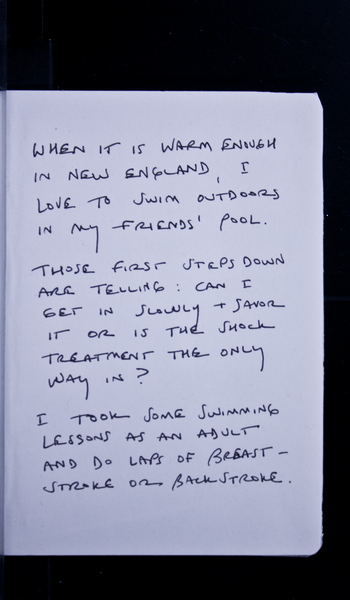 WHEN IT IS WARM ENOUGH
IN NEW ENGLAND, I
LOVE TO SWIM OUTDOORS
IN MY FRIENDS' POOL.
THOSE FIRST STEPS DOWN
ARE TELLING: CAN I
GET IN SLOWLY + SAVOR
IT OR IS THE SHOCK
TREATMENT THE ONLY
WAY IN?
I TOOK SOME SWIMMING
LESSONS AS AN ADULT
AND DO LAPS OF BREAST-
STROKE OR BACKSTROKE.